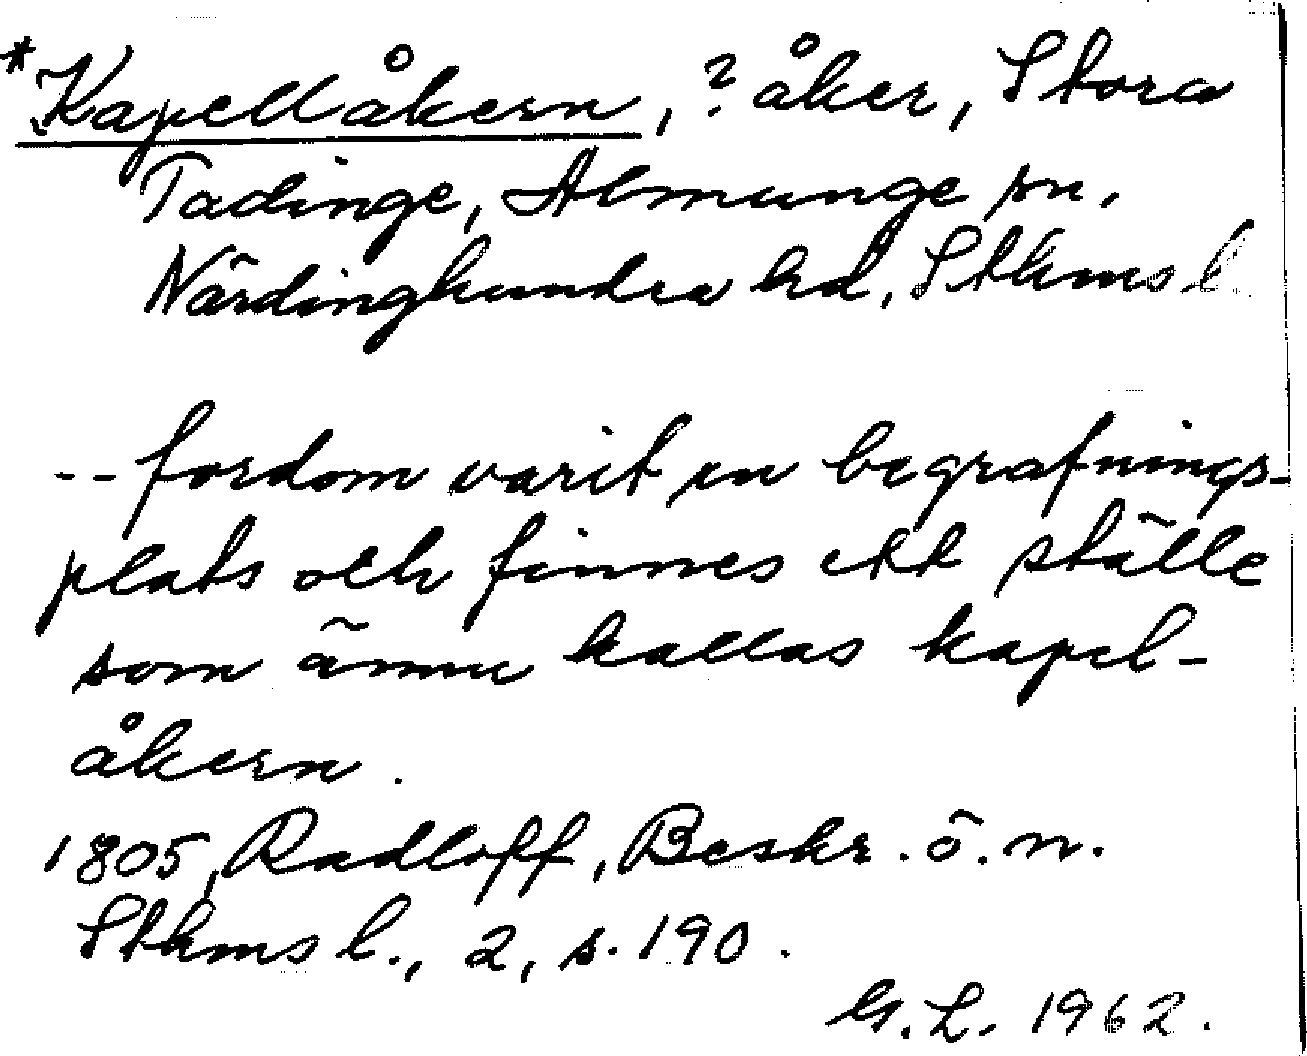 *Kapellåkern, ? åker, Stora
Tadinge, Almunge sn.
Närdinghundra hd, Sthms l.
-- fordom varit en begrafnings-
plats och finnes ett ställe
som ännu kallas kapel-
åkern.
1805, Radloff, Beskr. ö. n.
Sthms l., 2, s. 190.
G. L. 1962.